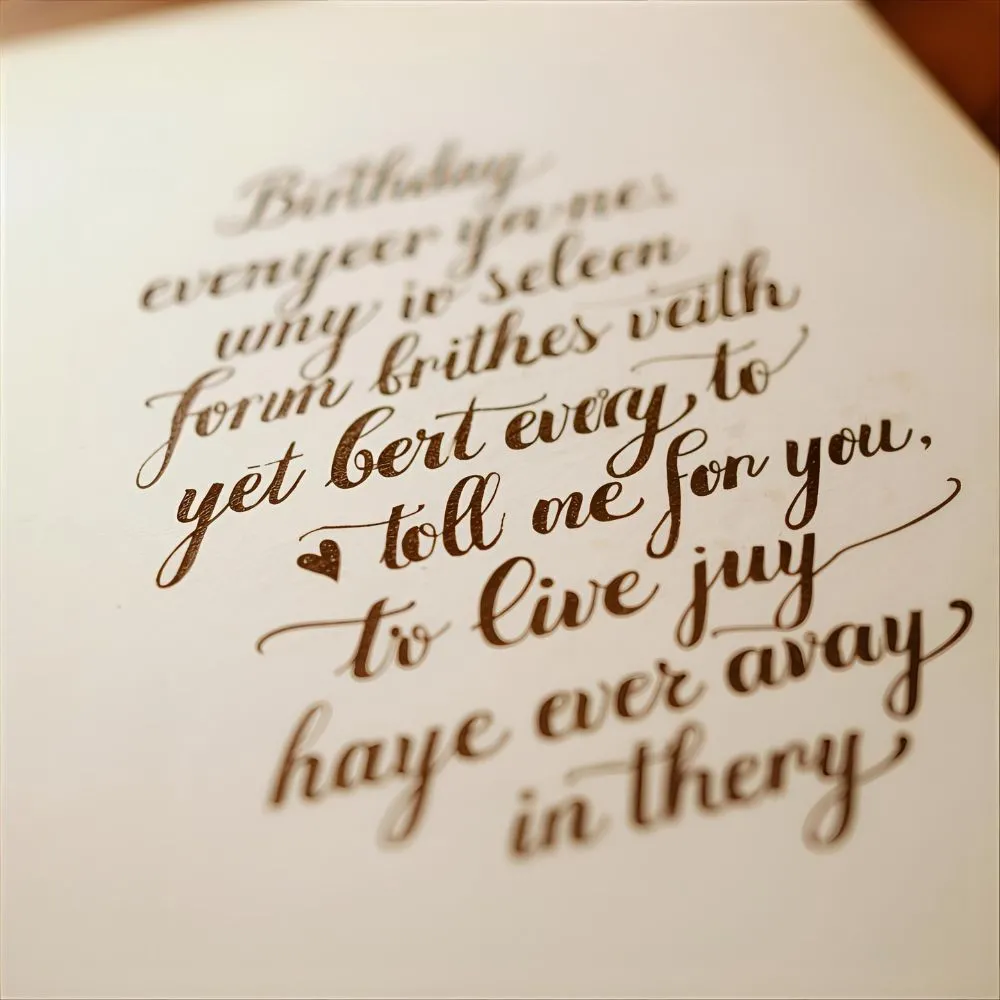 Birthday
everyeer ya·ne:
umy iv seleen
forum brithes veith
yet bert every, to
♥ toll me for you,
to live juy
haye ever avay
in thery